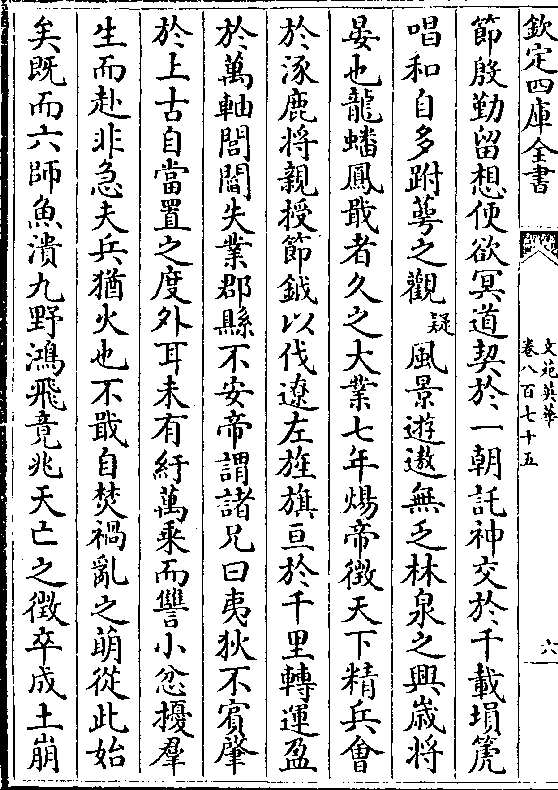 欽定四庫全書
文苑英華
卷八百七十五
六
節殷勤留想使欲冥道契於一朝託神交於千載塤箎
唱和自多跗萼之觀疑風景遊遨無乏林泉之興嵗將
晏也龍蟠鳳戢者久之大業七年煬帝徴天下精兵會
於涿鹿将親授節鉞以伐遼左旌旗亘於千里轉運盈
於萬軸閭閻失業郡縣不安帝謂諸兄曰夷狄不賓肇
於上古自當置之度外耳未有紆萬乗而讐小忿擾羣
生而赴非急夫兵猶火也不戢自焚禍亂之萌從此始
矣既而六師魚潰九野鴻飛竟兆天亡之徴卒成土崩